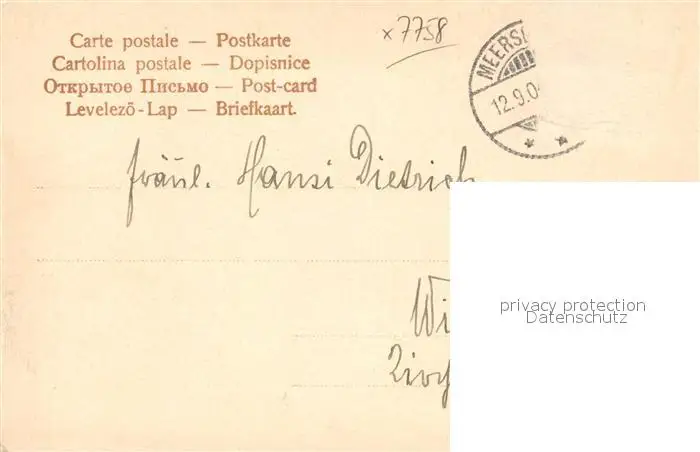 Carte postale — Postkarte
Cartolina postale — Dopisnice
Открытое Письмо — Post-card
Levelező-Lap — Briefkaart.
x7758
MEERS
12.9.0
Fräul. Hansi Dietrich
Wi
privacy protection
Datenschutz